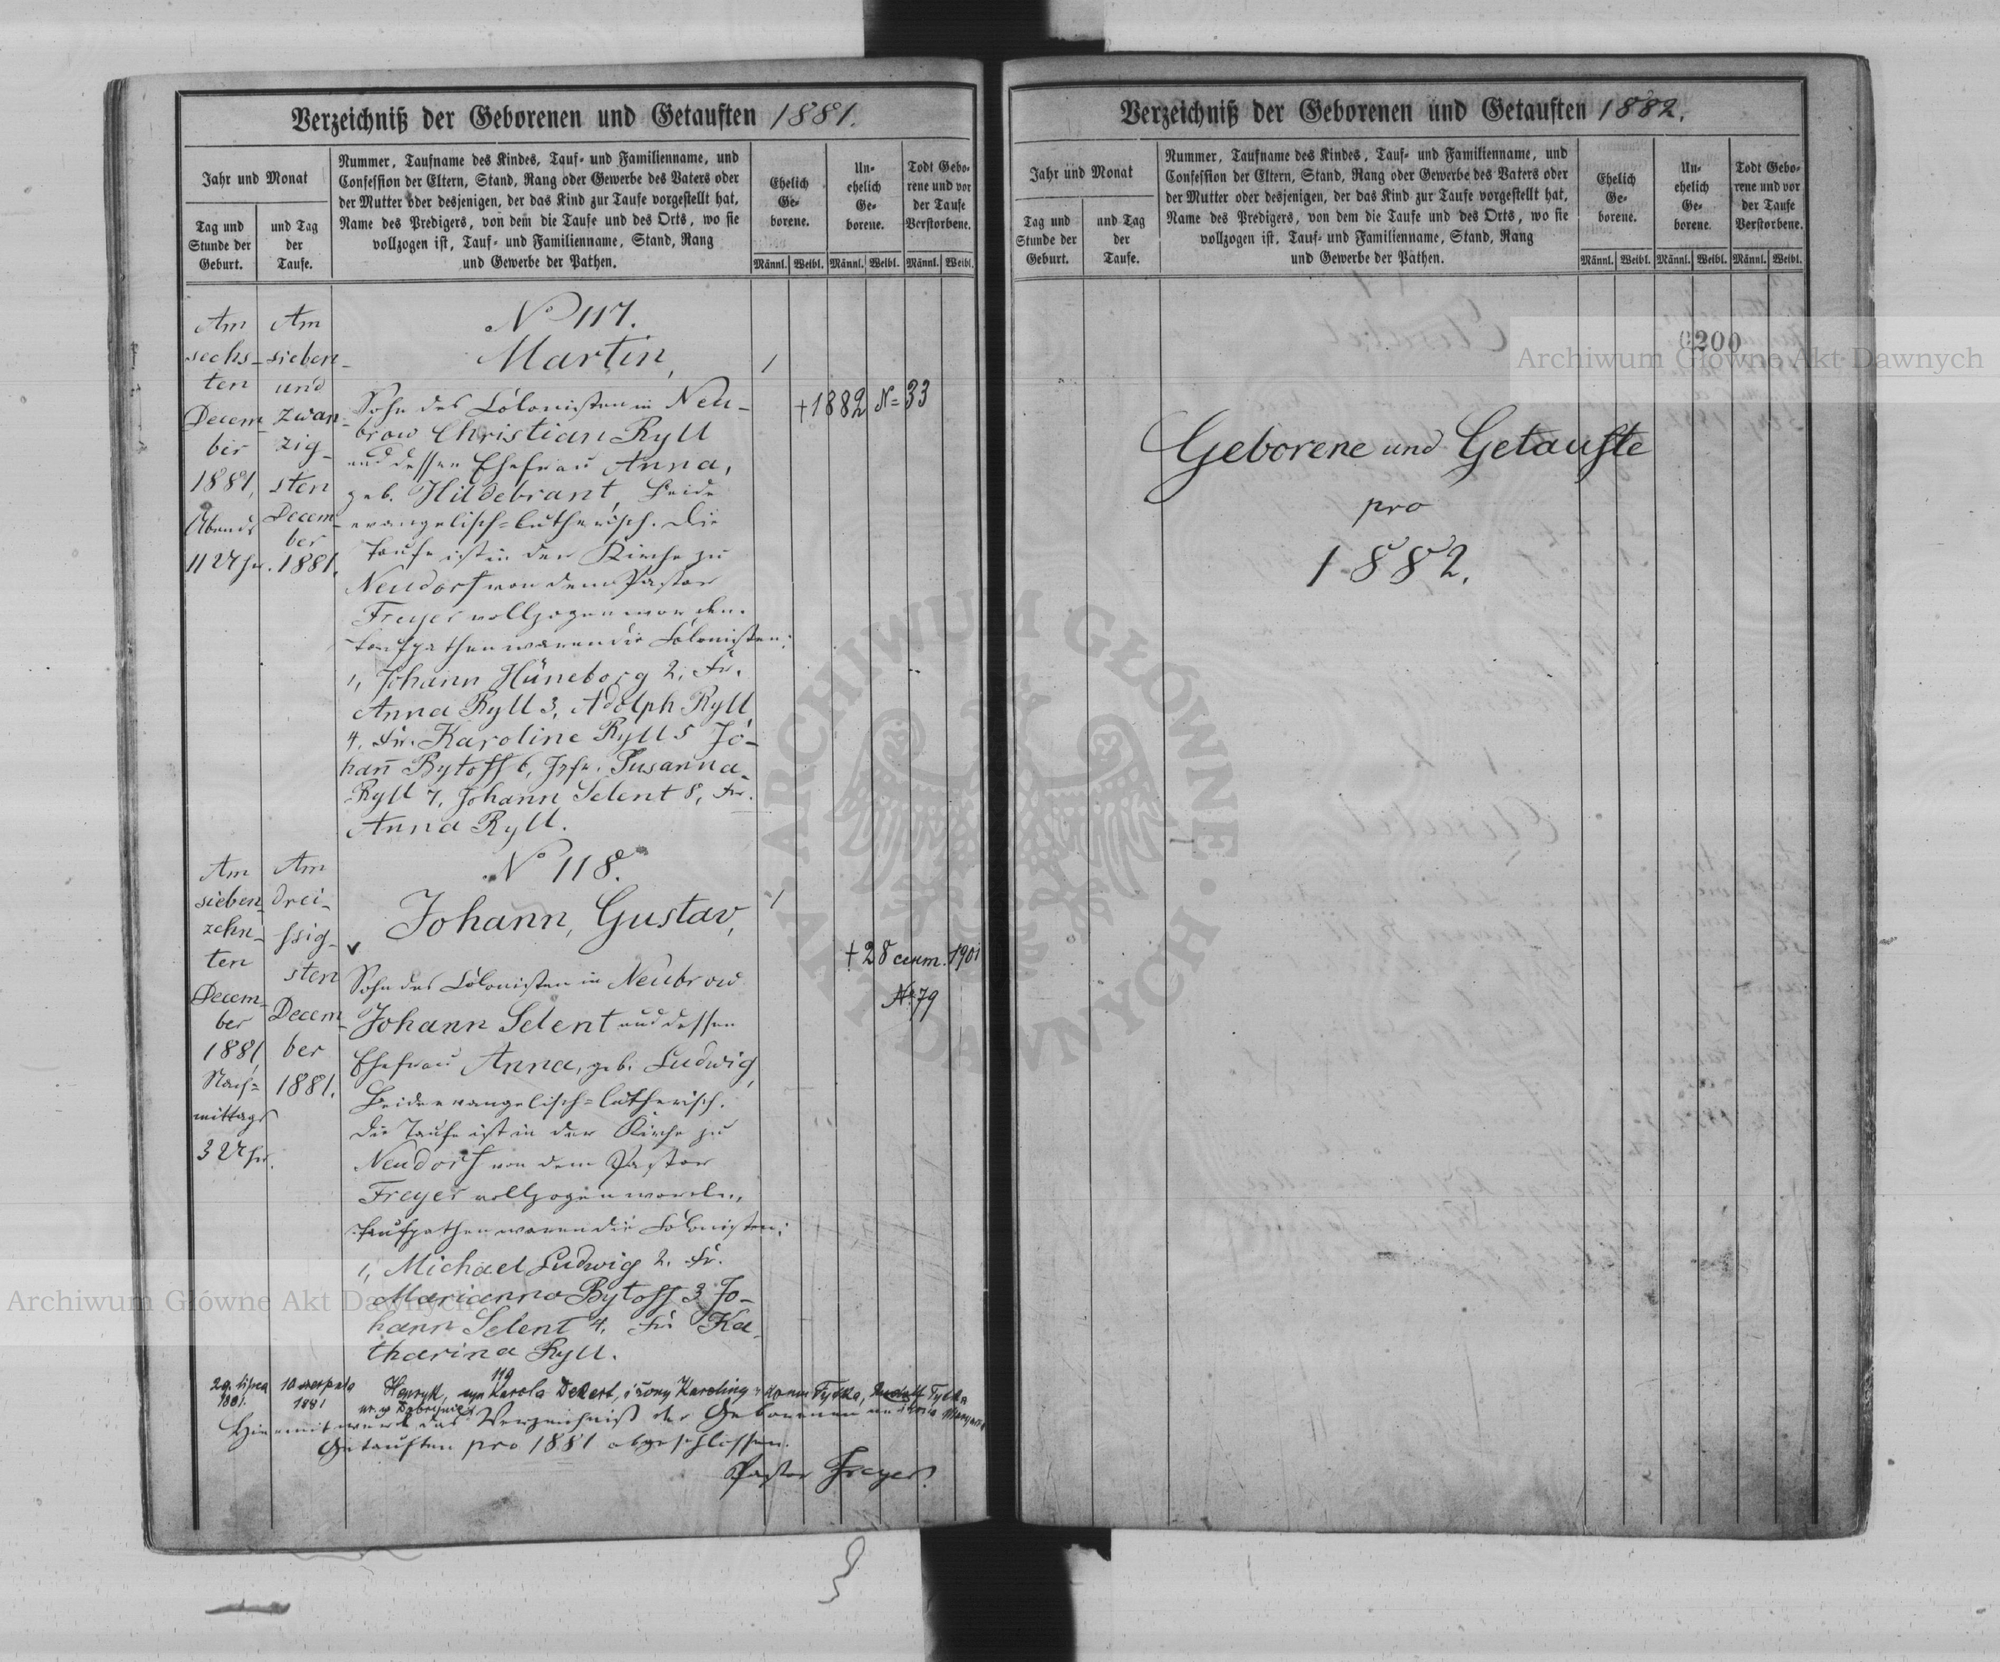 Verzeichniß der Geborenen und Getauften 1881.
Jahr und Monat
Tag und
Stunde der
Geburt.
und Tag
der
Taufe.
Nummer, Taufname des Kindes, Tauf- und Familienname, und
Confession der Eltern, Stand, Rang oder Gewerbe des Vaters oder
der Mutter oder desjenigen, der das Kind zur Taufe vorgestellt hat,
Name des Predigers, von dem die Taufe und des Orts, wo sie
vollzogen ist, Tauf- und Familienname, Stand, Rang
und Gewerbe der Pathen.
Ehelich
Ge-
borene.
Un-
ehelich
Ge-
borene.
Todt Gebo-
rene und vor
der Taufe
Verstorbene.
Männl. Weibl. Männl. Weibl. Männl. Weibl.
Am
sechs-
ten
Decem
ber
1881,
Abends
11 Uhr.
Am
sieben-
und
zwan-
zig-
sten
Decem-
ber
1881.
No 117.
Martin,
Sohn des Colonisten in Neu-
brow Christian Ryll
und dessen Ehefrau Anna,
geb. Hildebrant, beide
evangelisch-lutherisch. Die
Taufe ist in der Kirche zu
Neudorf von dem Pastor
Freyer vollzogen worden.
Taufpathen waren die Colonisten:
1, Johann Hüneborg 2. Fr.
Anna Ryll 3, Adolph Ryll
4. Fr. Karoline Ryll 5 Jo-
hann Bytoff 6, Jgfr. Susanna
Ryll 7, Johann Selent 8, Fr.
Anna Ryll.
1
+1882 N= 33
Am
sieben-
zehn-
ten
Decem-
ber
1881
Nach-
mittags
3 Uhr.
Am
drei-
ssig-
sten
Decem-
ber
1881.
No 118.
Johann, Gustav,
Sohn des Colonisten in Neubrow
Johann Selent und dessen
Ehefrau Anna, geb. Ludwig,
beide evangelisch-lutherisch.
Die Taufe ist in der Kirche zu
Neudorf von dem Pastor
Freyer vollzogen worden,
Taufpathen waren die Colonisten:
1, Michael Ludwig 2. Fr.
Marianna Bytoff 3 Jo-
hann Selent 4. Fr. Ka-
tharina Ryll.
1
+ 28 1901
No 79
119
29. lipca 10 sierpnia Henryk, syn Karola Dekert, i żony Karoliny Tytka, Tytka
1881. 1881
Hiermit wurde das Verzeichniß der Geborenen und
Getauften pro 1881 abgeschlossen.
Pastor Freyer.
Verzeichniß der Geborenen und Getauften 1882.
Jahr und Monat
Tag und
Stunde der
Geburt.
und Tag
der
Taufe.
Nummer, Taufname des Kindes, Tauf- und Familienname, und
Confession der Eltern, Stand, Rang oder Gewerbe des Vaters oder
der Mutter oder desjenigen, der das Kind zur Taufe vorgestellt hat,
Name des Predigers, von dem die Taufe und des Orts, wo sie
vollzogen ist, Tauf- und Familienname, Stand, Rang
und Gewerbe der Pathen.
Ehelich
Ge-
borene.
Un-
ehelich
Ge-
borene.
Todt Gebo-
rene und vor
der Taufe
Verstorbene.
Männl. Weibl. Männl. Weibl. Männl. Weibl.
0200
Archiwum Główne Akt Dawnych
Geborene und Getaufte
pro
1882.
Archiwum Główne Akt Dawnych
· ARCHIWUM GŁÓWNE ·
AKT DAWNYCH